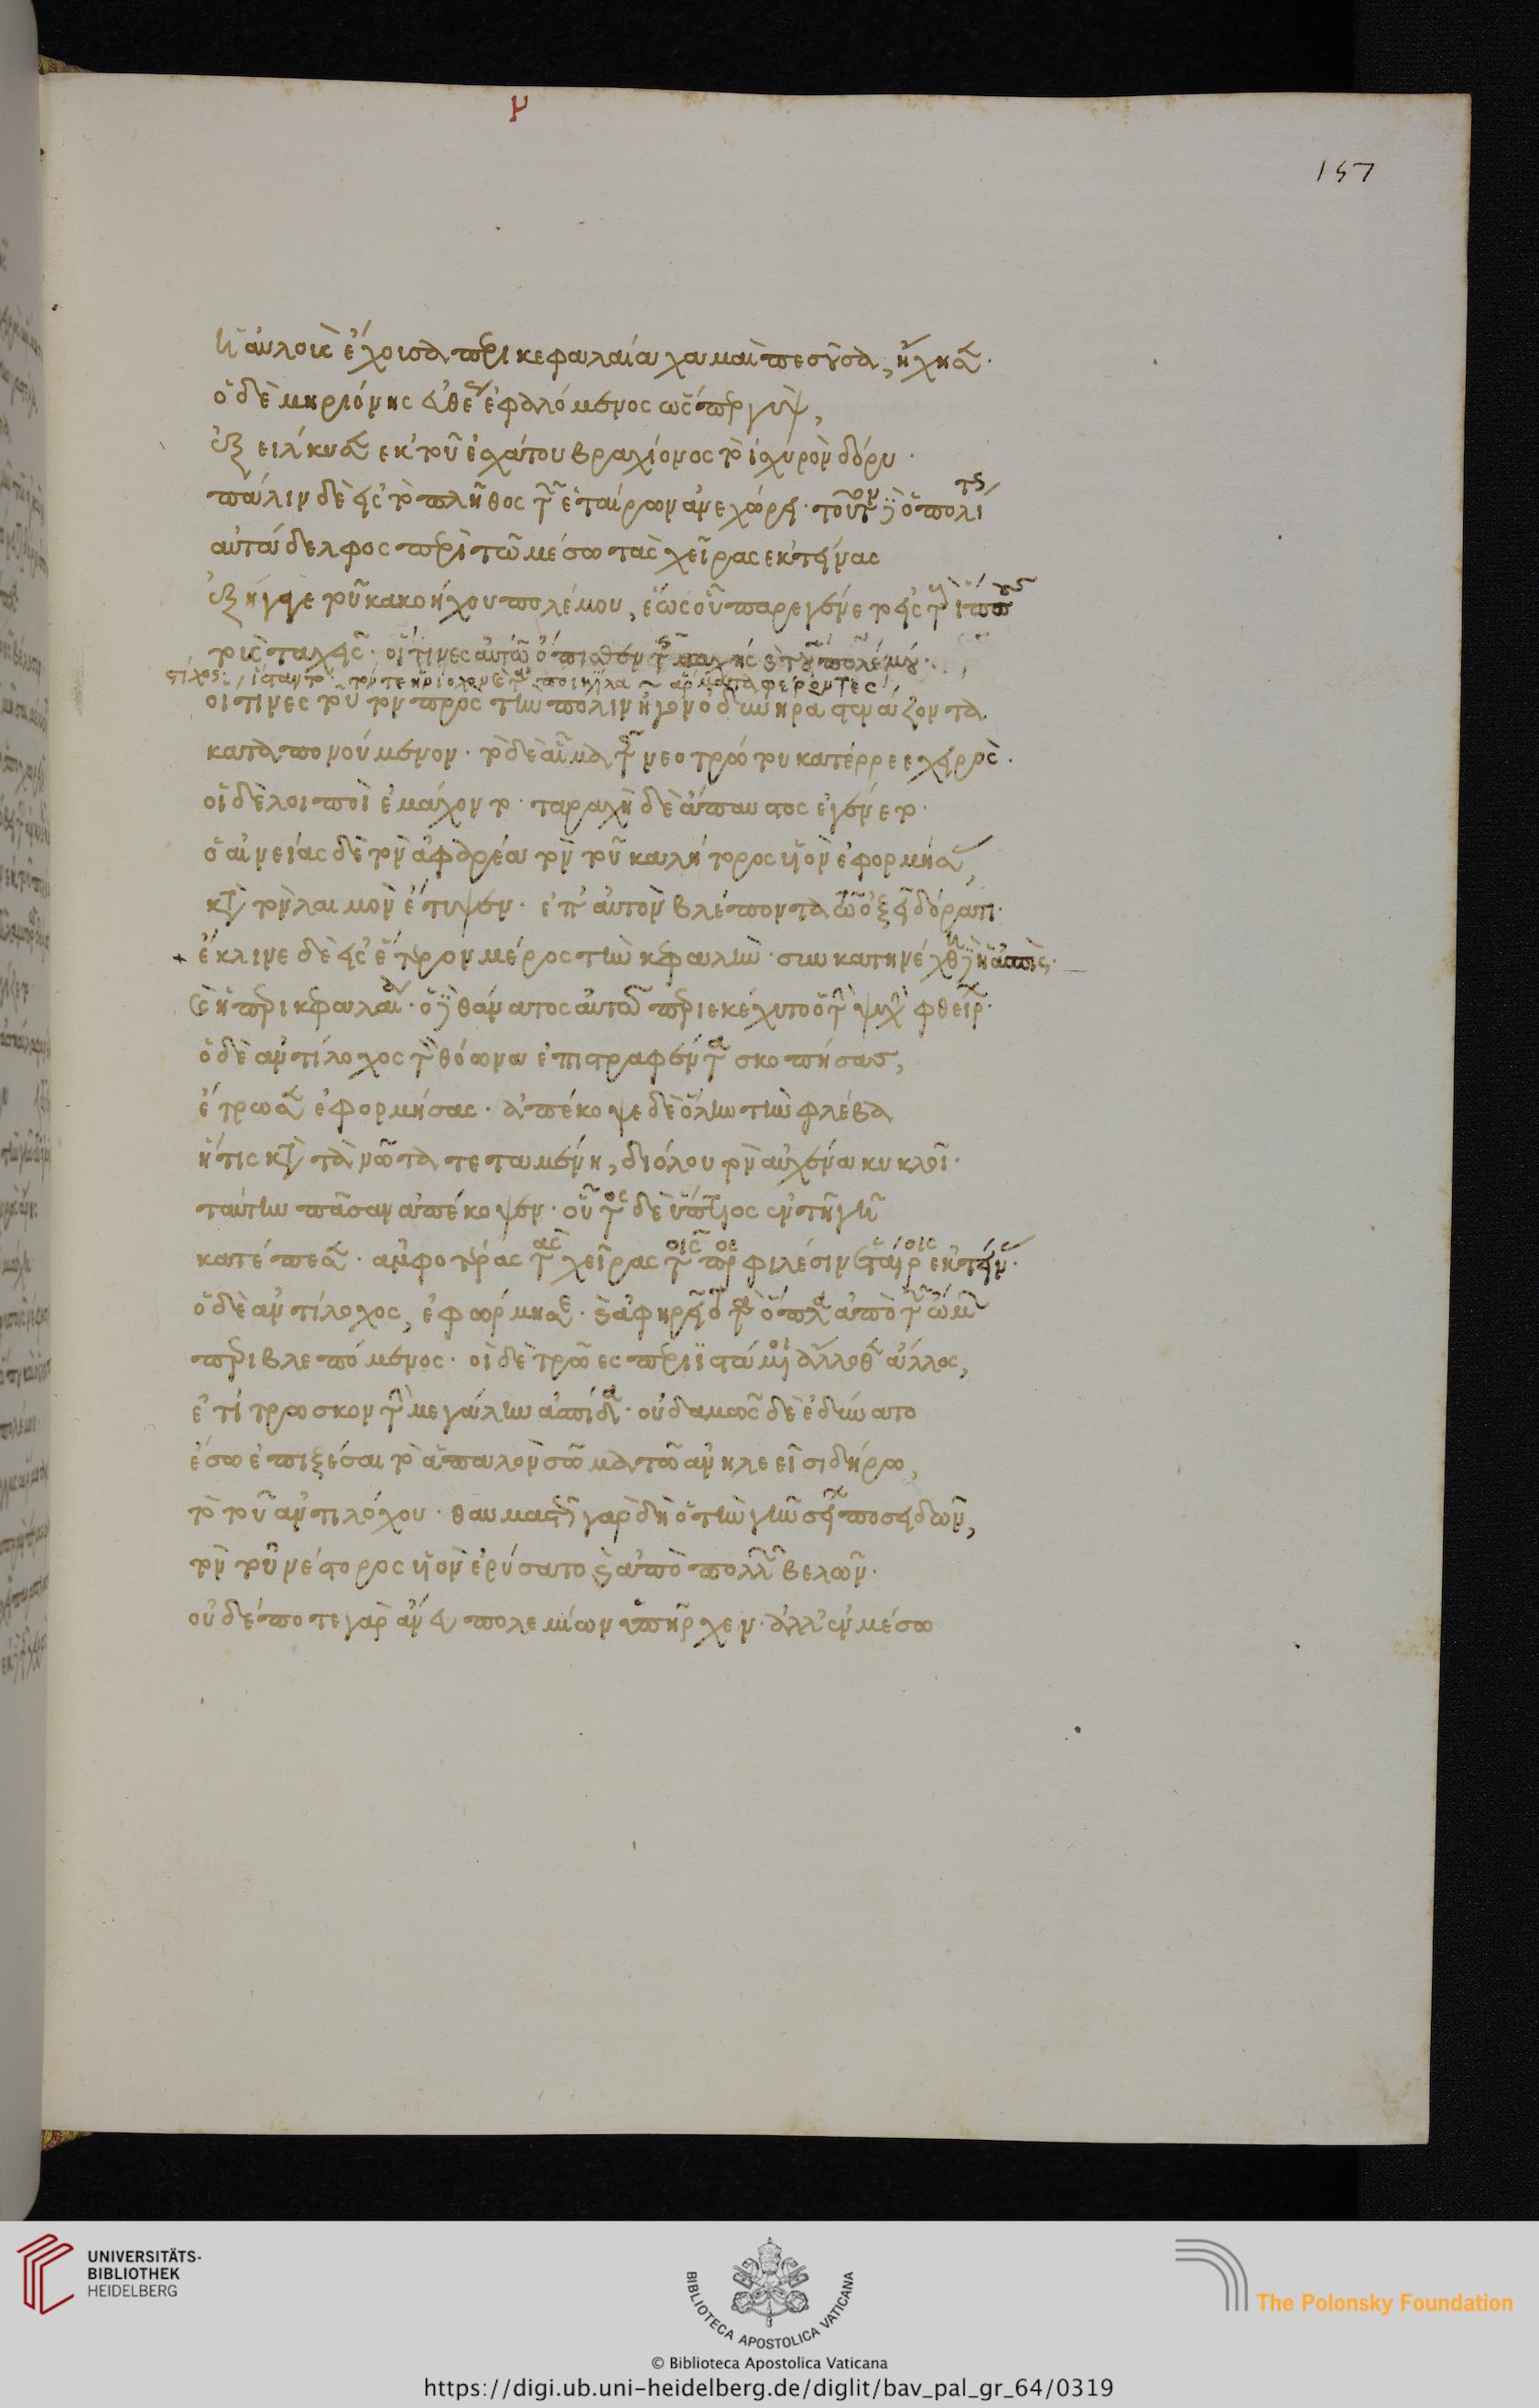 Ν
157
ἡ αὐλοὺς ἔχουσα περικεφαλαία χαμαὶ πεσοῦσα, ἤχησεν·
ὁ δὲ μηριόνης εὐθέως ἐφαλόμενος ὥσπερ γὺψ,
ἐξείλκυσεν ἐκ τοῦ ἐσχάτου βραχίονος τὸ ἰσχυρὸν δόρυ·
πάλιν δὲ εἰς τὸ πλῆθος τῶν ἑταίρων ἀνεχώρει· τοῦτον δὲ ὁ πολίτης
αὐτάδελφος περὶ τῷ μέσω τὰς χεῖρας ἐκτείνας
ἐξήγαγε τοῦ κακοήχου πολέμου, ἕως οὗ παρεγένετο εἰς τοὺς ἵππους
τοὺς ταχεῖς· οἵτινες αὐτῶ ὄπισθεν τῆς μάχης καὶ τοῦ πολέμου·
ἵσταντο· τόν τε ἡνίοχον καὶ τὰ ποικίλα ἅρματα φέροντες
οἵτινες τοῦτον πρὸς τὴν πόλιν ἦγον ὀδυνηρὰ στενάζοντα
καταπονούμενον· τὸ δὲ αἷμα τῆς νεοτρώτου κατέρρεε χειρός·
οἱ δὲ λοιποὶ ἐμάχοντο· ταραχὴ δὲ ἄπαυστος ἐγένετο·
ὁ αἰνείας δὲ τὸν ἀφαρέα τὸν τοῦ καλήτορος υἱὸν ἐφορμήσας,
κατὰ τὸν λαιμὸν ἔτυψεν· ἐπ' αὐτὸν βλέποντα τῶ ὀξεῖ δόρατι·
ἔκλινε δὲ εἰς ἕτερον μέρος τὴν κεφαλὴν· συγκατηνέχθη δὲ ἡ ἀσπὶς·
καὶ ἡ περικεφαλαία· ὁ δὲ θάνατος αὐτῶ περιεκέχυτο ὁ τὴν ψυχὴν φθείρων·
ὁ δὲ ἀντίλοχος τὸν θόωνα ἐπιστραφέντα σκοπήσας,
ἔτρωσεν ἐφορμήσας· ἀπέκοψε δὲ ὅλην τὴν φλέβα
ἥτις κατὰ τὰ νῶτα τεταμένη, διόλου τὸν αὐχένα κυκλοῖ·
ταύτην πᾶσαν ἀπέκοψεν· οὗτος δὲ ὕπτιος ἐν τῆ γῆ
κατέπεσεν· ἀμφοτέρας τὰς χεῖρας τοῖς προσφιλέσιν ἑταίροις ἐκτείνας·
ὁ δὲ ἀντίλοχος, ἐφώρμησε· καὶ ἀφηρεῖτο τὰ ὅπλα ἀπὸ τῶν ὤμων
περιβλεπόμενος· οἱ δὲ τρῶες περιϊστάμενοι ἄλλοθεν ἄλλος,
ἐτίτρωσκον τὴν μεγάλην ἀσπίδα· οὐδαμῶς δὲ ἐδύναντο
ἔσω ἐπιξέσαι τὸ ἁπαλὸν σῶμα τῶ ἀνηλεεῖ σιδήρω,
τὸ τοῦ ἀντιλόχου· θαυμαστῶς γὰρ δὴ ὁ τὴν γῆν σείων ποσειδῶν,
τὸν τοῦ νέστορος υἱὸν ἐρύσατο καὶ ἀπὸ πολλῶν βελῶν·
οὐδέποτε γὰρ ἄνευ πολεμίων ὑπῆρχεν· ἀλλ' ἐν μέσω
UNIVERSITÄTS-
BIBLIOTHEK
HEIDELBERG
BIBLIOTECA APOSTOLICA VATICANA
The Polonsky Foundation
© Biblioteca Apostolica Vaticana
https://digi.ub.uni-heidelberg.de/diglit/bav_pal_gr_64/0319